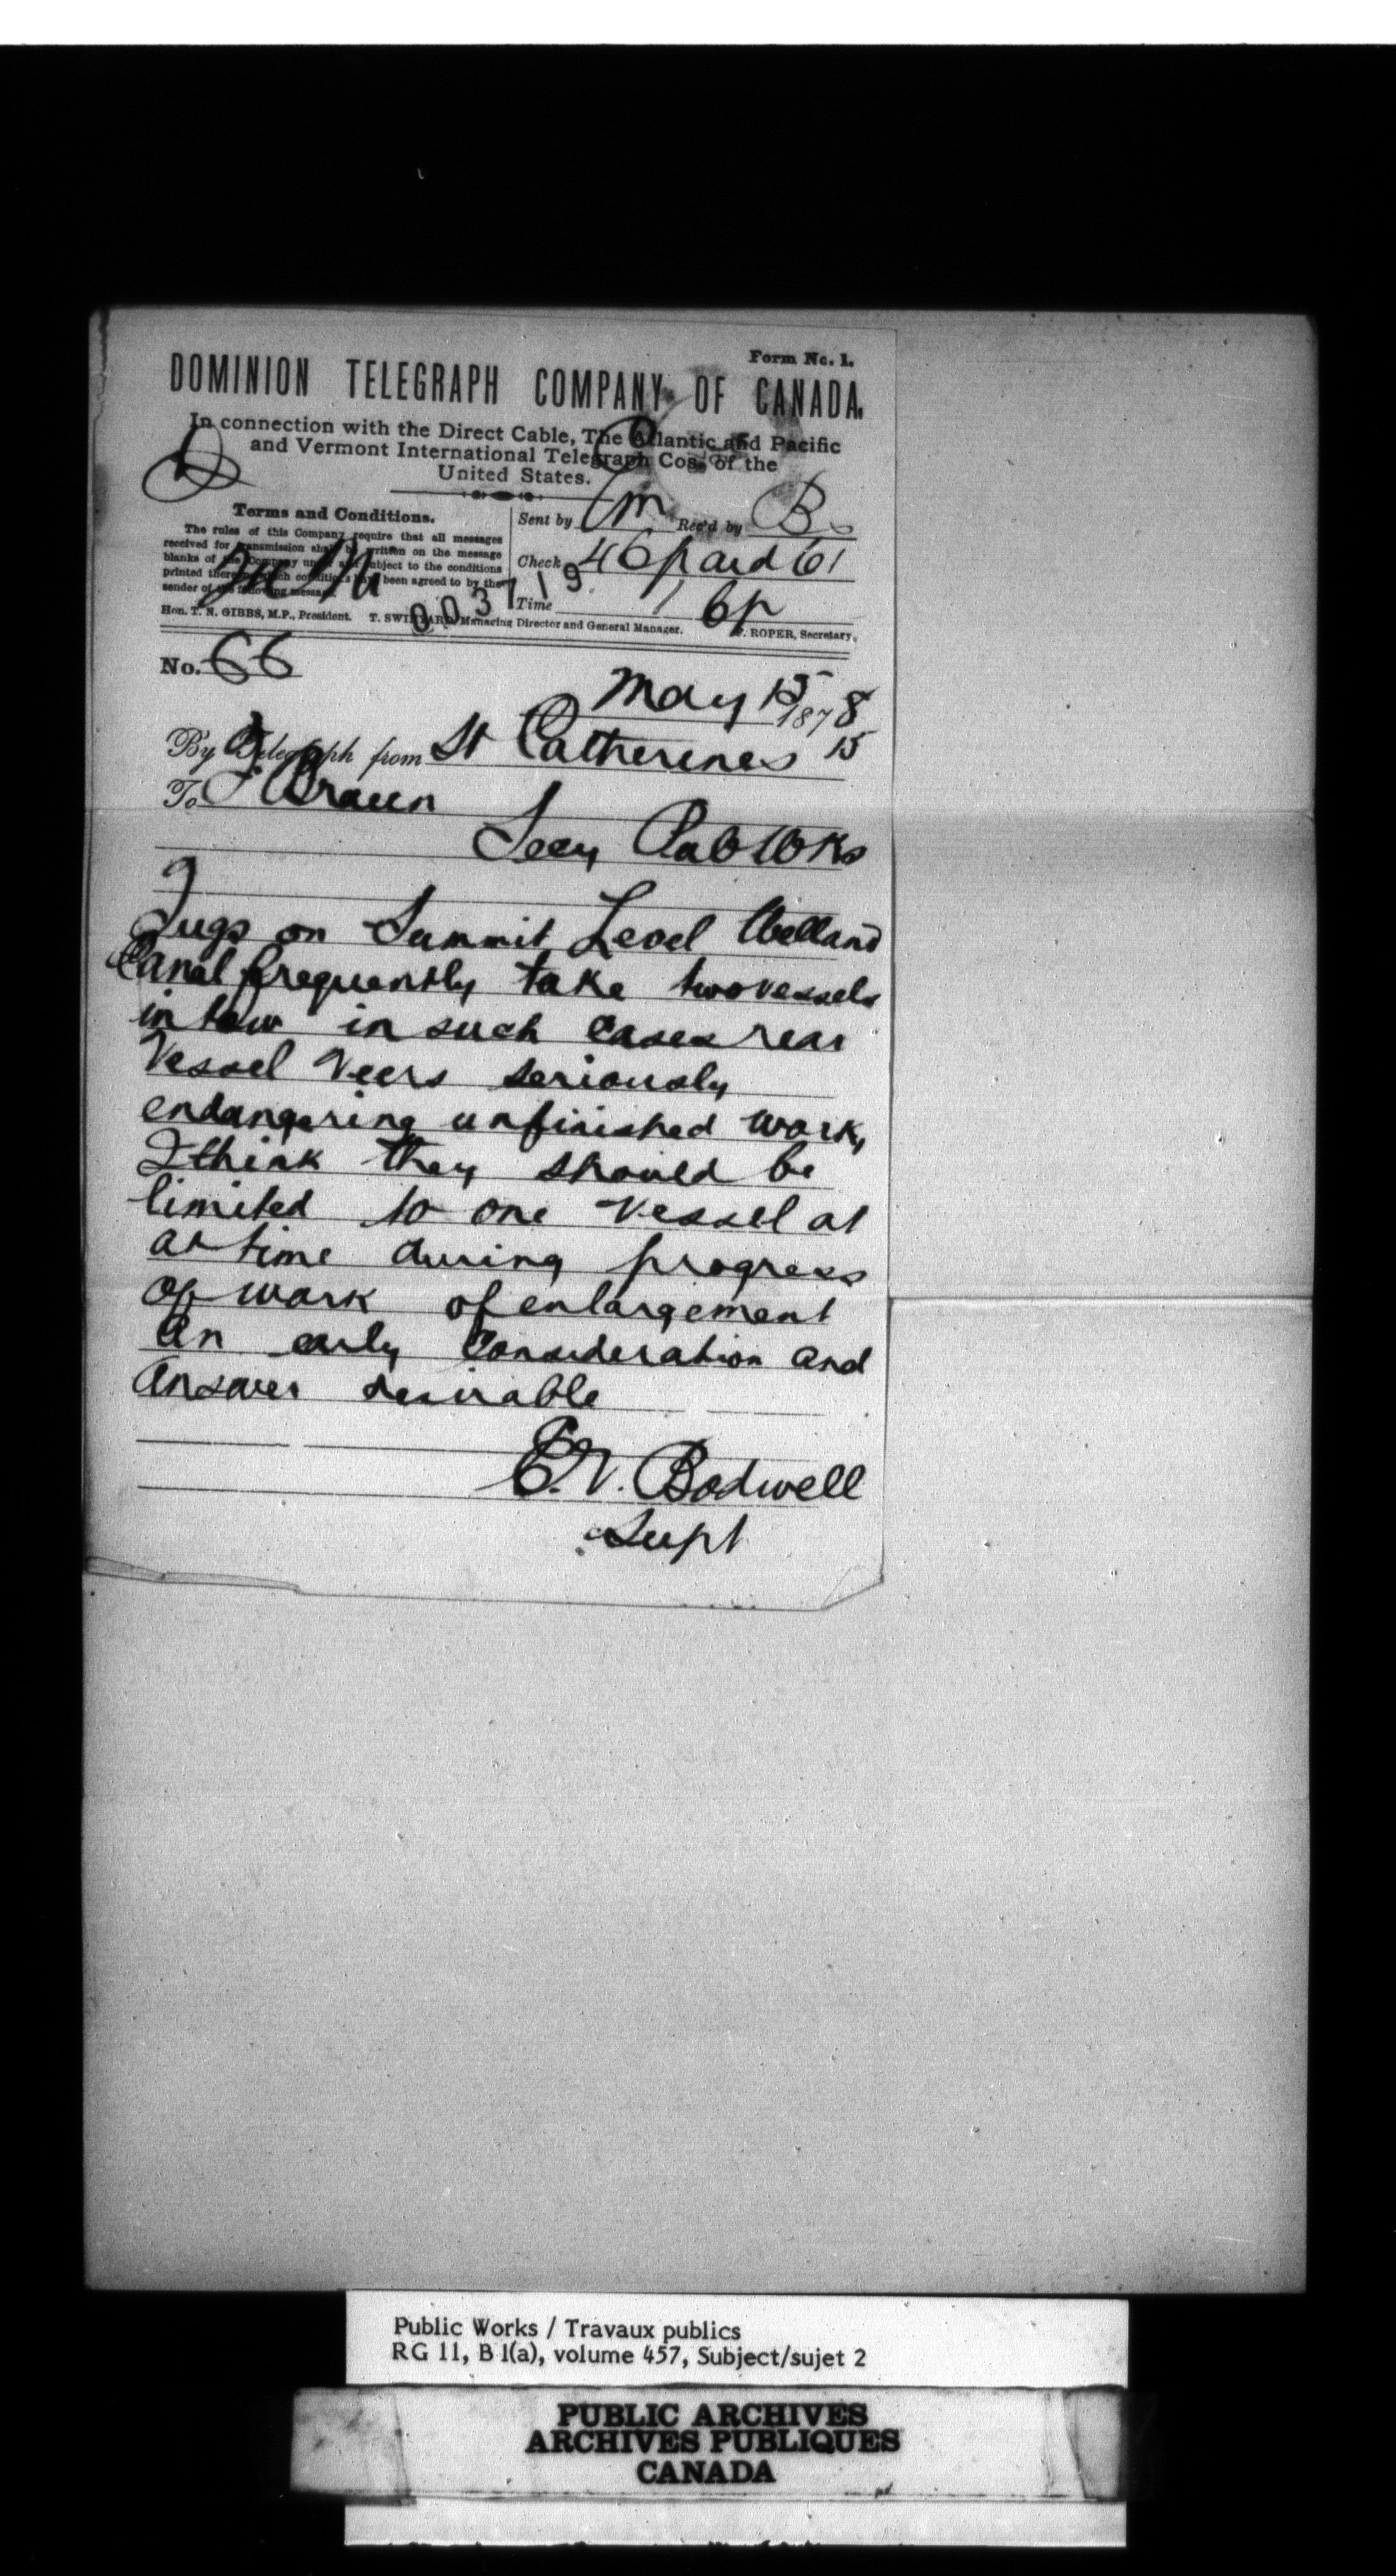 Form No. 1.
DOMINION TELEGRAPH COMPANY OF CANADA.
In connection with the Direct Cable, The Atlantic and Pacific
and Vermont International Telegraph Cos. of the
United States.
Terms and Conditions.
The rules of this Company require that all messages
received for transmission shall be written on the message
blanks of the Company under and subject to the conditions
printed thereon, which conditions have been agreed to by the
sender of the following message.
Sent by m Rec'd by B
Check 46 paid 61
Time 1 6p
003719
Hon. T. N. GIBBS, M.P., President. T. SWINYARD, Managing Director and General Manager. F. ROPER, Secretary.
No. 66
May 15 1878
By Telegraph from St Catherines 15
To F Braun
Secy Pub Wks
Tugs on Summit Level Welland
Canal frequently take two vessels
in tow in such cases rear
Vessel Veers seriously
endangering unfinished work,
I think they should be
limited to one vessel at
a time during progress
of work of enlargement
An early Consideration and
Answer desirable
E.V. Bodwell
Supt
Public Works / Travaux publics
RG 11, B 1(a), volume 457, Subject/sujet 2
PUBLIC ARCHIVES
ARCHIVES PUBLIQUES
CANADA